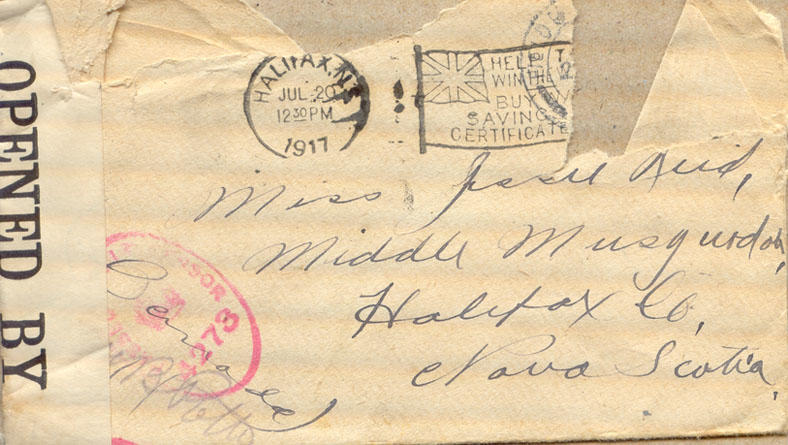 OPENED BY
HALIFAX, N.S.
JUL 20
12 30 PM
1917
HELP
WIN THE
BUY
SAVING
CERTIFICATE
Miss Jessie Reid,
Middle Musquodob
Halifax Co.
Nova Scotia
Canada